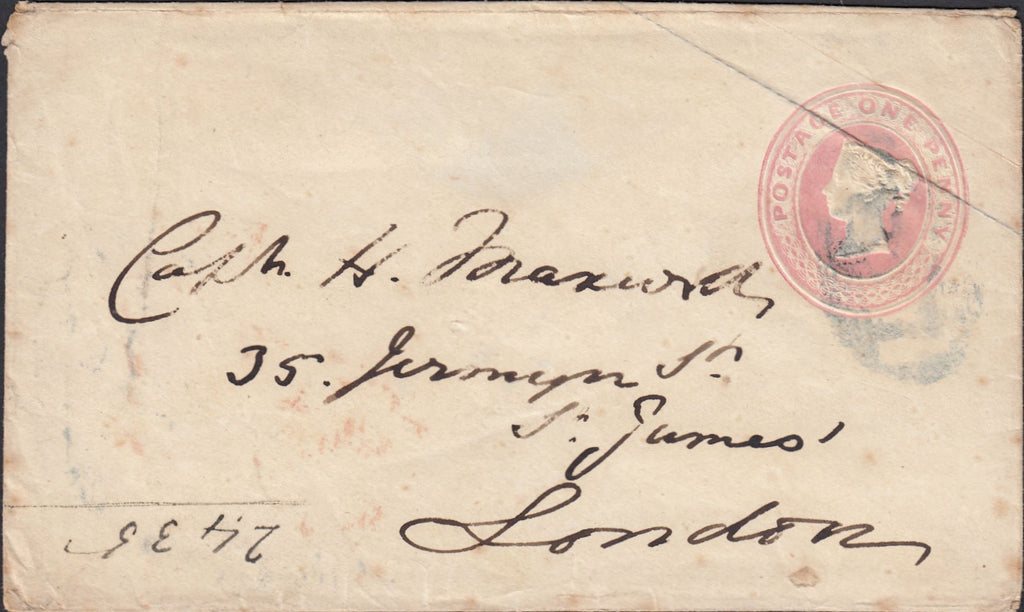 POSTAGE ONE PENNY
Capt. H. Maxwell,
35. Jermyn St.
St. James'
London
2435